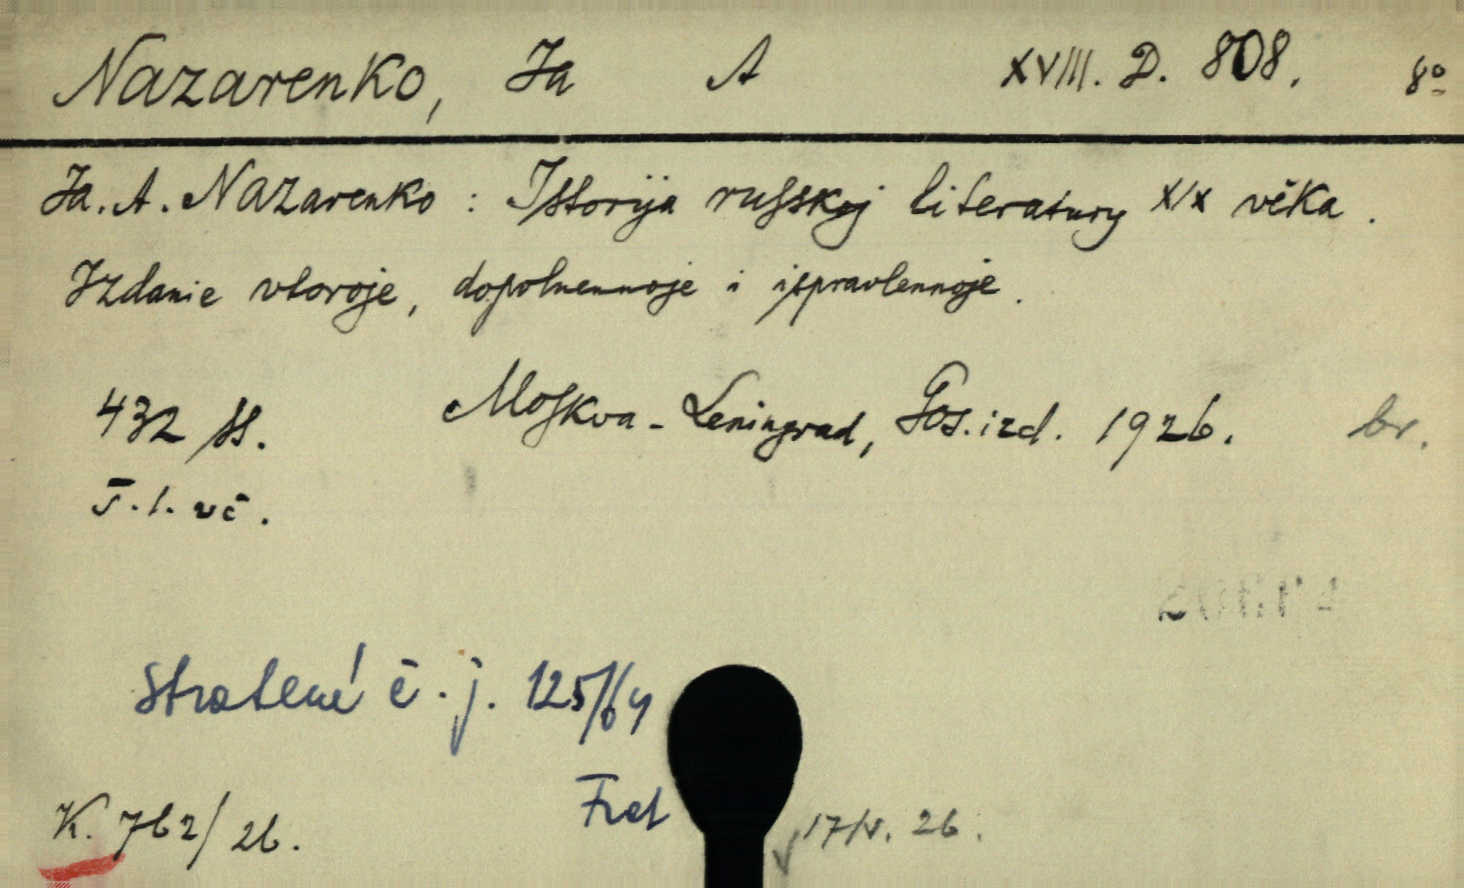 Nazarenko, Ja A XVIII. D. 808. 8º
Ja. A. Nazarenko : Istorija russkoj literatury XIX věka.
Izdanie vtoroje, dopolnennoje i ispravlennoje.
432 ss. Moskva - Leningrad, Gos. izd. 1926. br.
T. 1. vč.
Stratené č. j. 125/64
K. 762/26. 17/V. 26.